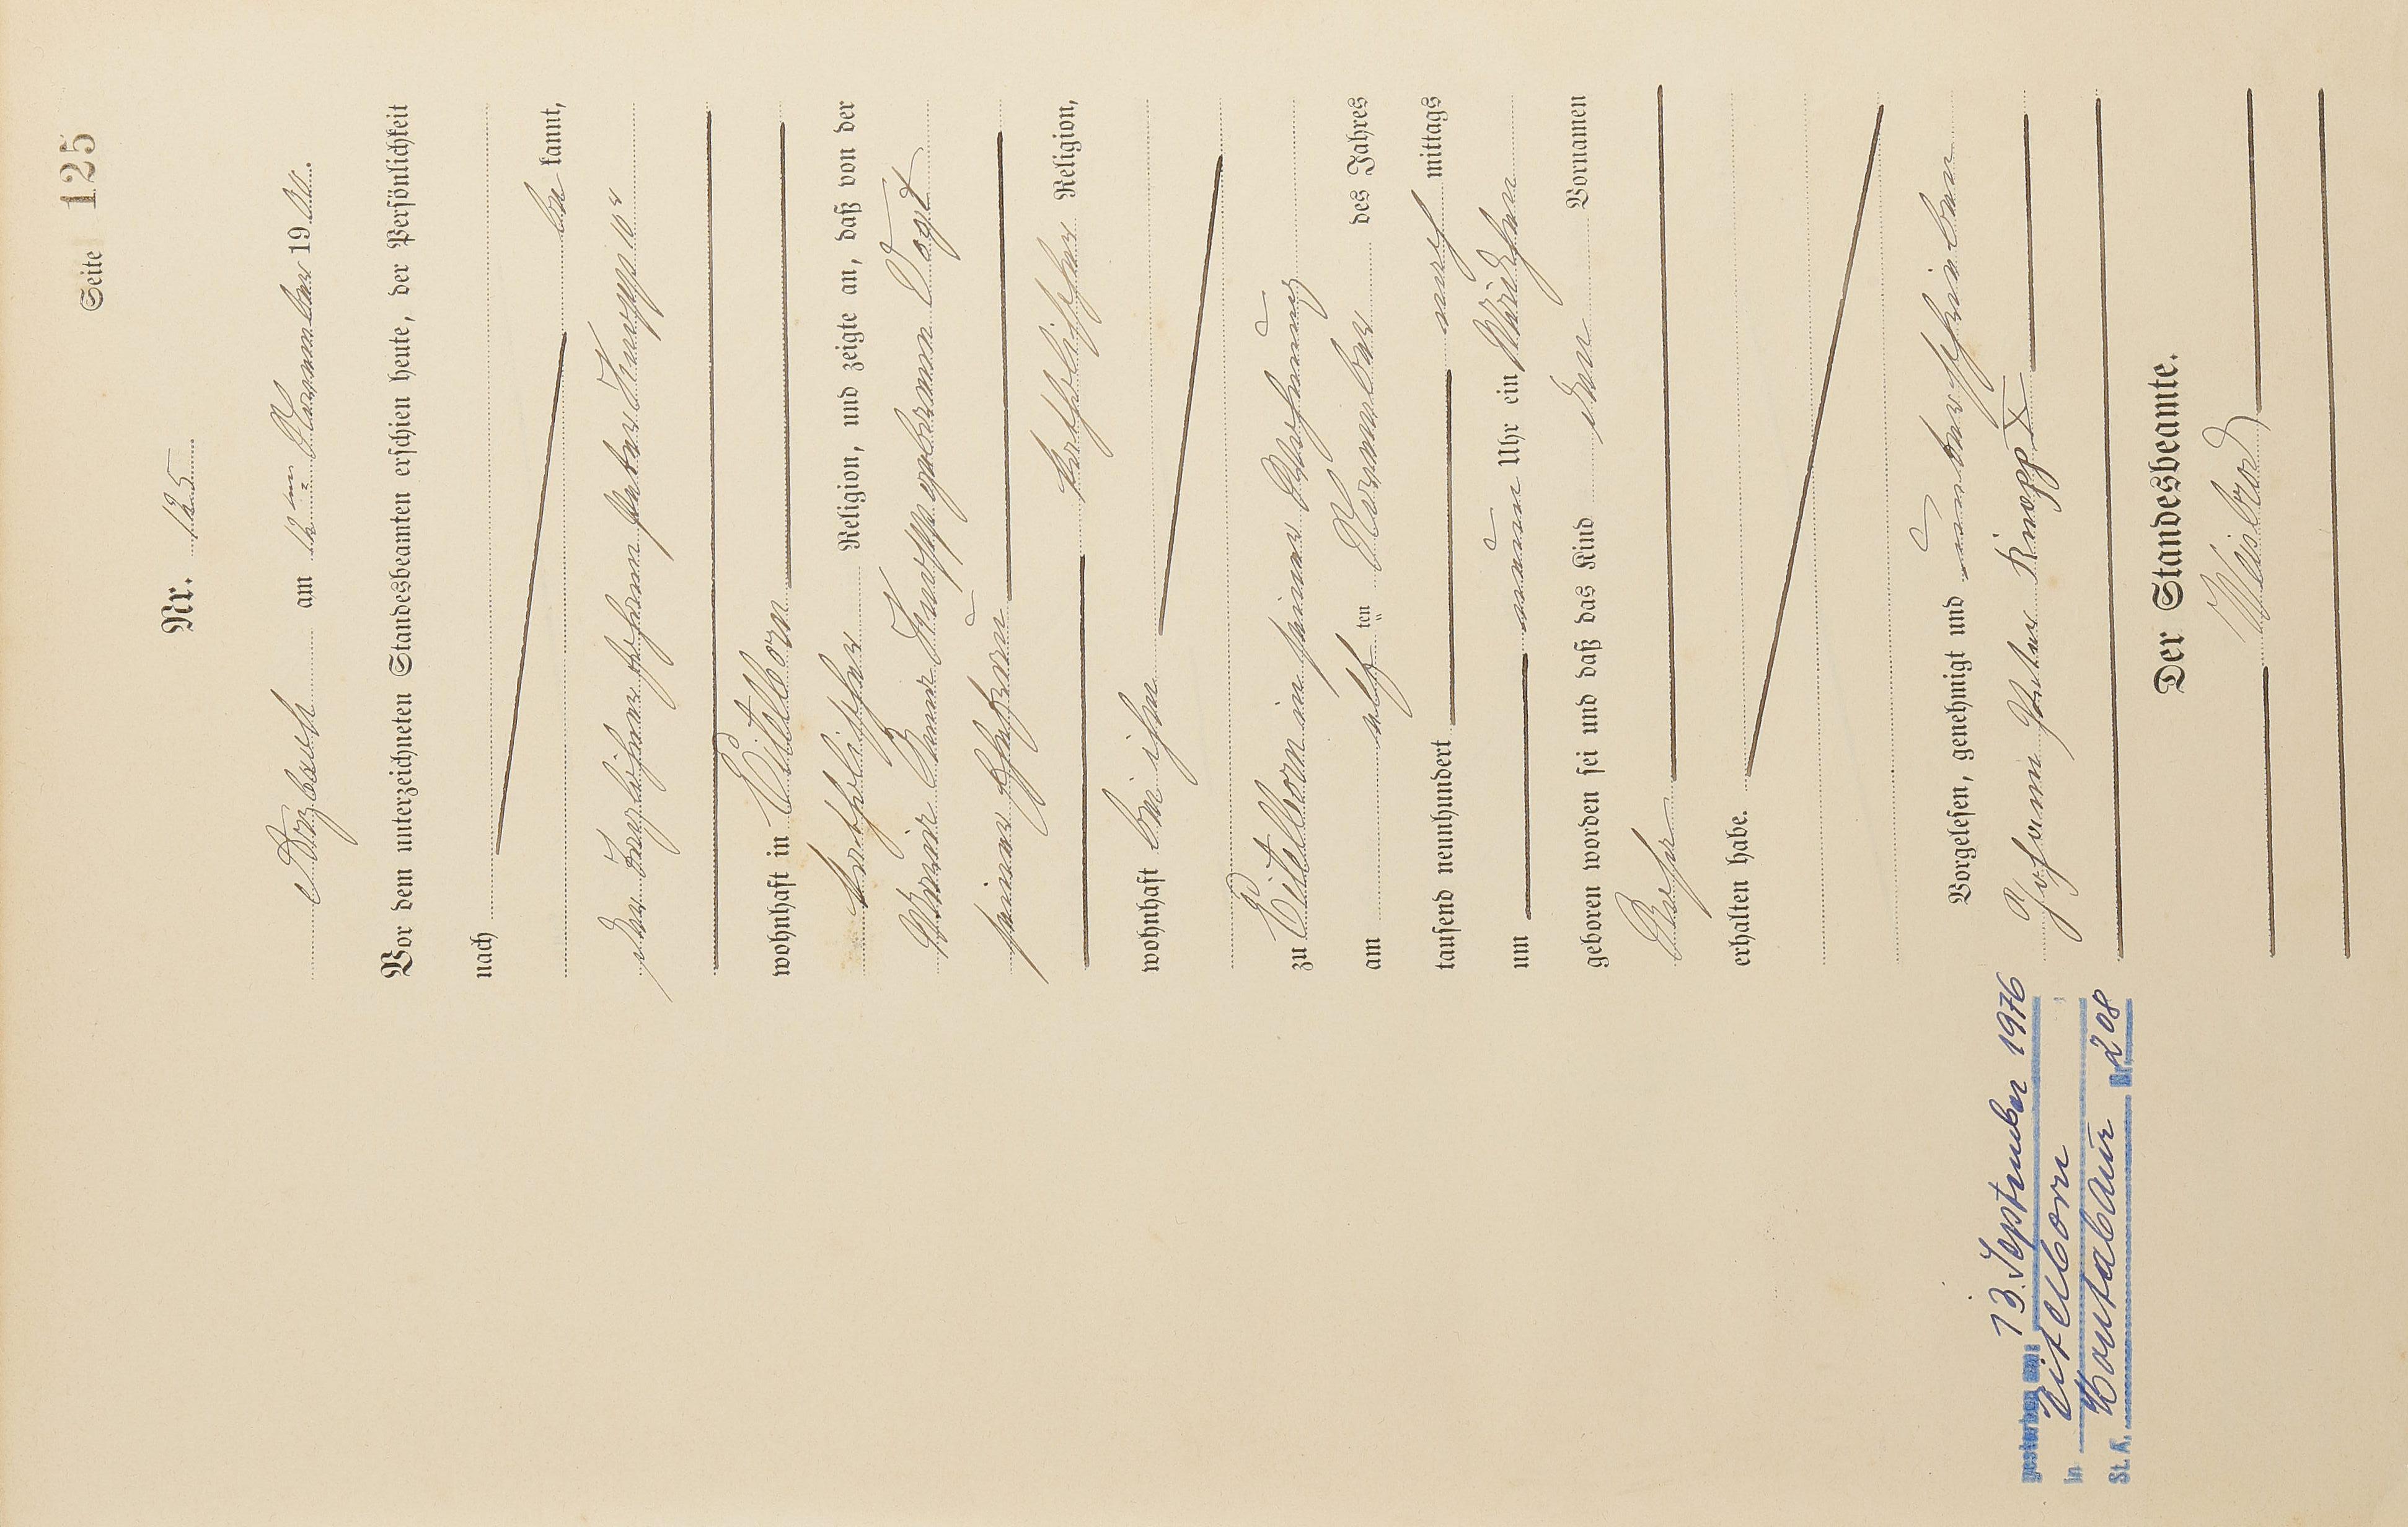 Seite 125
Nr. 125
Arzbach am 12ten November 1900.
Vor dem unterzeichneten Standesbeamten erschien heute, der Persönlichkeit
nach
be kannt,
der Taglöhner Johann Peter Knopp
wohnhaft in Eitelborn
katholischer Religion, und zeigte an, daß von der
Maria Anna Knopp geborenen Vogt
seiner Ehefrau
katholischer Religion,
wohnhaft bei ihm
zu Eitelborn in seiner Wohnung
am elf ten November des Jahres
tausend neunhundert nach mittags
um neun Uhr ein Mädchen
geboren worden sei und daß das Kind den Vornamen
Rosa
erhalten habe.
Vorgelesen, genehmigt und unterschrieben
Johann Peter Knopp X
Der Standesbeamte.
Weisbrod
gestorben am: 13. September 1976
in Eitelborn
St. A. Montabaur Nr. 208